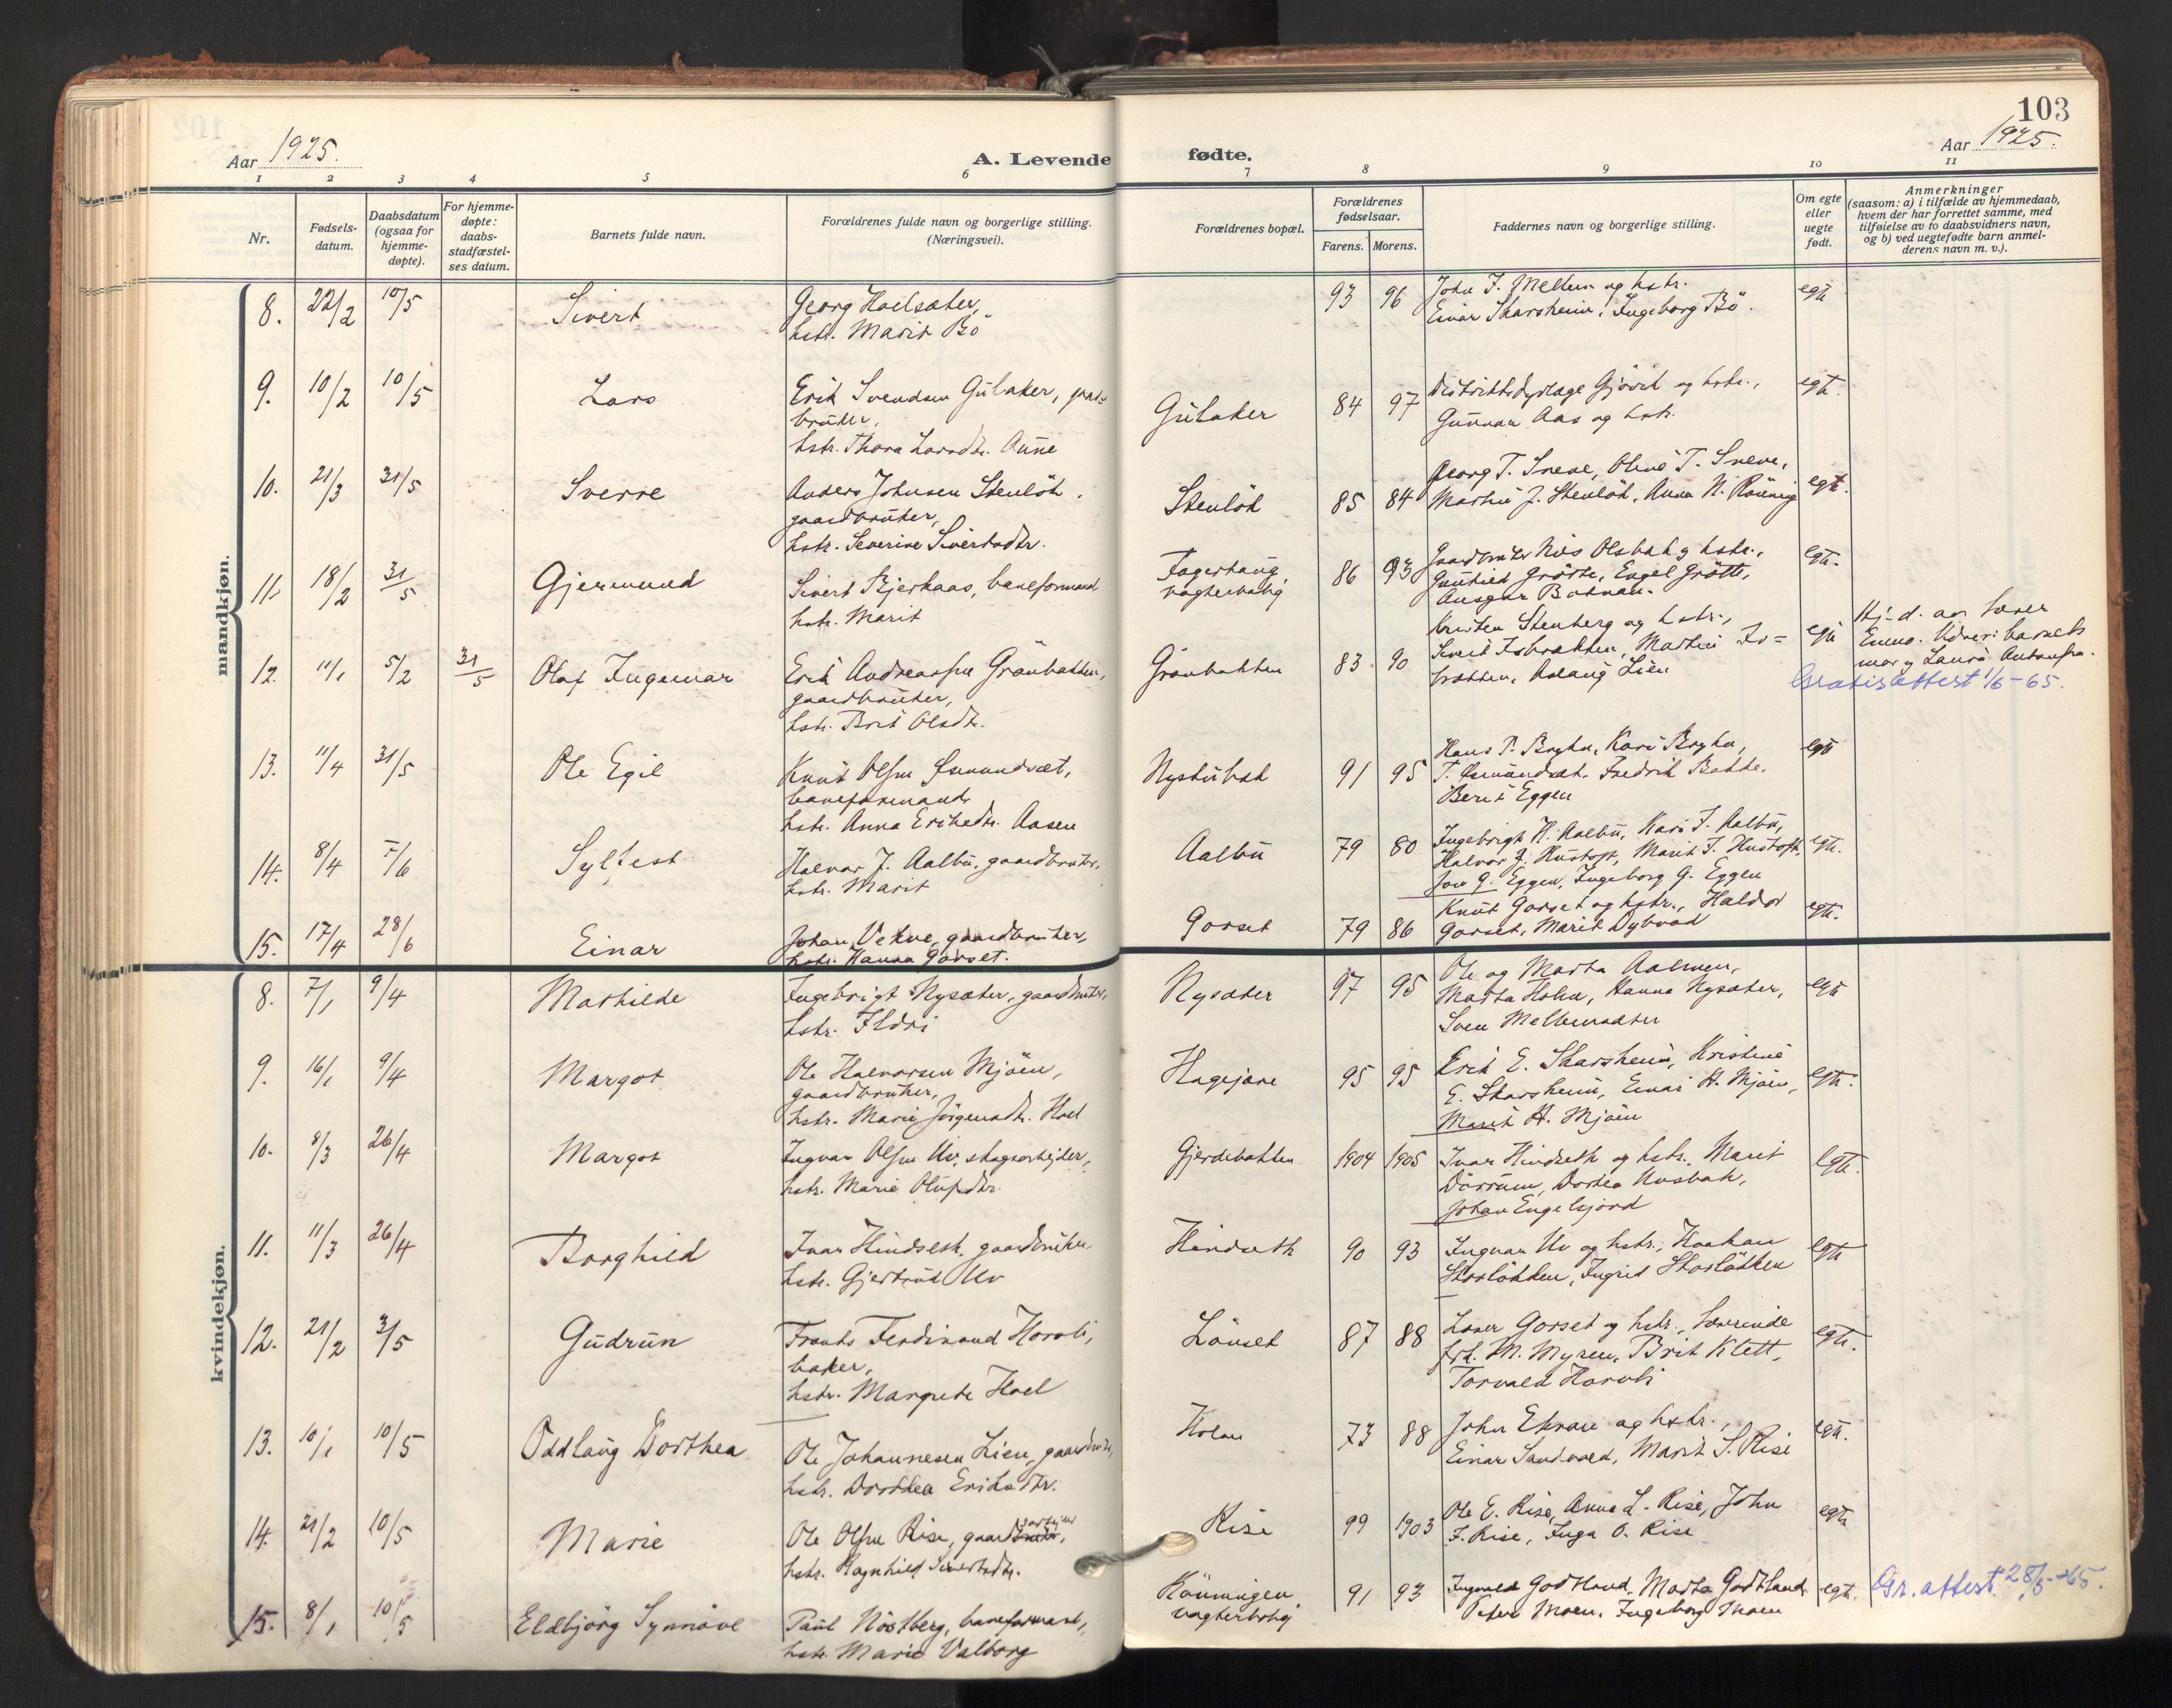 103
Aar 1925.
A. Levende fødte.
Aar 1925.
1 2 3 4 5 6 7 8 9 10 11
Nr.
Fødsels-
datum.
Daabsdatum
(ogsaa for
hjemme-
døpte).
For hjemme-
døpte:
daabs-
stadfæstel-
ses datum.
Barnets fulde navn.
Forældrenes fulde navn og borgerlige stilling.
(Næringsvei).
Forældrenes bopæl.
Forældrenes
fødselsaar.
Farens. Morens.
Faddernes navn og borgerlige stilling.
Om egte
eller
uegte
født.
Anmerkninger
(saasom: a) i tilfælde av hjemmedaab,
hvem der har forrettet samme, med
tilføielse av to daabsvidners navn,
og b) ved uegtefødte barn anmel-
derens navn m. v.).
mandkjøn.
8. 22/2 10/5 Sivert
Georg Hoelsæter,
hstr. Marit Bö
93 96
John J. Mellem og hstr.
Einar Skarsheim, Ingeborg Bö.
egte
9. 10/2 10/5 Lars
Erik Svendsen Gulaker, gaard-
bruker,
hstr. Thora Larsdtr. Aune
Gulaker 84 97
Gunnar Aas og hstr.
egte.
10. 21/3 31/5 Sverre
Anders Johnsen Stenlök,
gaardbruker,
hstr. Severine Sivertsdtr.
Stenlök 85 84
Georg T. Sneve, Oline T. Sneve,
Marthe J. Stenlök, Anna N. Rönning
egte.
11. 18/2 31/5 Gjermund
Sivert Bjerkaas, baneformand
hstr. Marit
Fagerhaug
vogterbolig
86 93
Gaardbruker Nils Olsbak og hstr.,
Gunhild Grötte, Engel Grötte,
Ansgar
egte.
12. 11/1 5/2 31/5 Olaf Ingemar
Erik Andreassen Grönbakken,
gaardbruker,
hstr. Brit Olsdtr.
Grönbakken 83 90
Kristen Stenberg og hstr.,
Sivert Isbrekken, Marthe Is=
brekken, Aslaug Lien
egte
Hj.d. av lærer
Emmo. Vidner: barnets
mor og Laura
Gratisattest 1/6-65.
13. 11/4 31/5 Ole Egil
Knut Olsen Gunundvæt,
baneformand
hstr. Anna Eriksdtr. Aasen
Nystubak 91 95
Hans P. Bryhn, Kari Bryhn,
Fredrik Bakke,
Berit Eggen
egte
14. 8/4 7/6 Sylfest
Halvor J. Aalbu, gaardbruker,
hstr. Marit
Aalbu 79 80
Ingebrigt H. Aalbu, Kari J. Aalbu,
Halvor J. Hustoft, Marit J. Hustoft,
Jon G. Eggen, Ingeborg G. Eggen
egte.
15. 17/4 28/6 Einar
Johan Vekve, gaardbruker,
hstr. Hanna Gorset.
Gorset 79 86
Knut Gorset og hstr., Haldor
Gorset, Marit Dybvad
egte.
kvindekjøn.
8. 7/1 9/4 Mathilde
Ingebrigt Nysæter, gaardbruker,
hstr. Ildri
Nysæter 97 95
Ole og Marta Aalmen,
Marta Holm, Hanna Nysæter,
Sven Mellemsæter
egte
9. 16/1 9/4 Margot
Ole Halvorsen Mjöen,
gaardbruker,
hstr. Marie Jörgensdtr. Hoel
Hagejore 95 95
Erik E. Skarsheim, Kristine
E. Skarsheim, Einar H. Mjöen,
Marit H. Mjöen
egte.
10. 8/3 26/4 Margot
Ingvar Olsen Uv, skogsarbejder,
hstr. Marie Olufsdtr.
Gjerdebakken 1904 1905
Ivar Hindseth og hstr., Marit
Dörrum, Dortea Husbak,
Johan Engelsjord
egte.
11. 11/3 26/4 Borghild
Ivar Hindseth, gaardbruker
hstr. Gjertrud Uv
Hindseth 90 93
Ingvar Uv og hstr., Haakon
Storlökken, Ingrid Storlökken
egte
12. 21/2 3/5 Gudrun
Frants Ferdinand Horvli,
baker,
hstr. Margrete Hoel
Lönset 87 88
Gorset og hstr., lærerinde
frk. M. Myren, Brit Klett,
Torvald Horvli
egte.
13. 10/1 10/5 Oddlaug Dorthea
Ole Johannesen Lien, gaardbruker,
hstr. Dorthea Eriksdtr.
Holan 73 88
John Ekran og hstr.,
Einar Sandvold, Marit S. Rise
egte.
14. 21/2 10/5 Marie
Ole Olsen Rise, gaardsarbejder,
hstr. Ragnhild Sivertsdtr.
Rise 99 1903
Ole E. Rise, Anne L. Rise, John
J. Rise, Inga O. Rise
egte
15. 8/1 10/5 Eldbjörg Synnöve
Paul Nöstberg, baneformand,
hstr. Marie Valborg
Rönningen
vogterbolig
91 93
Ingvald Godtland, Marta Godtland
Peter Moen, Ingeborg Moen
egte.
Gr. attest 28/5-65.